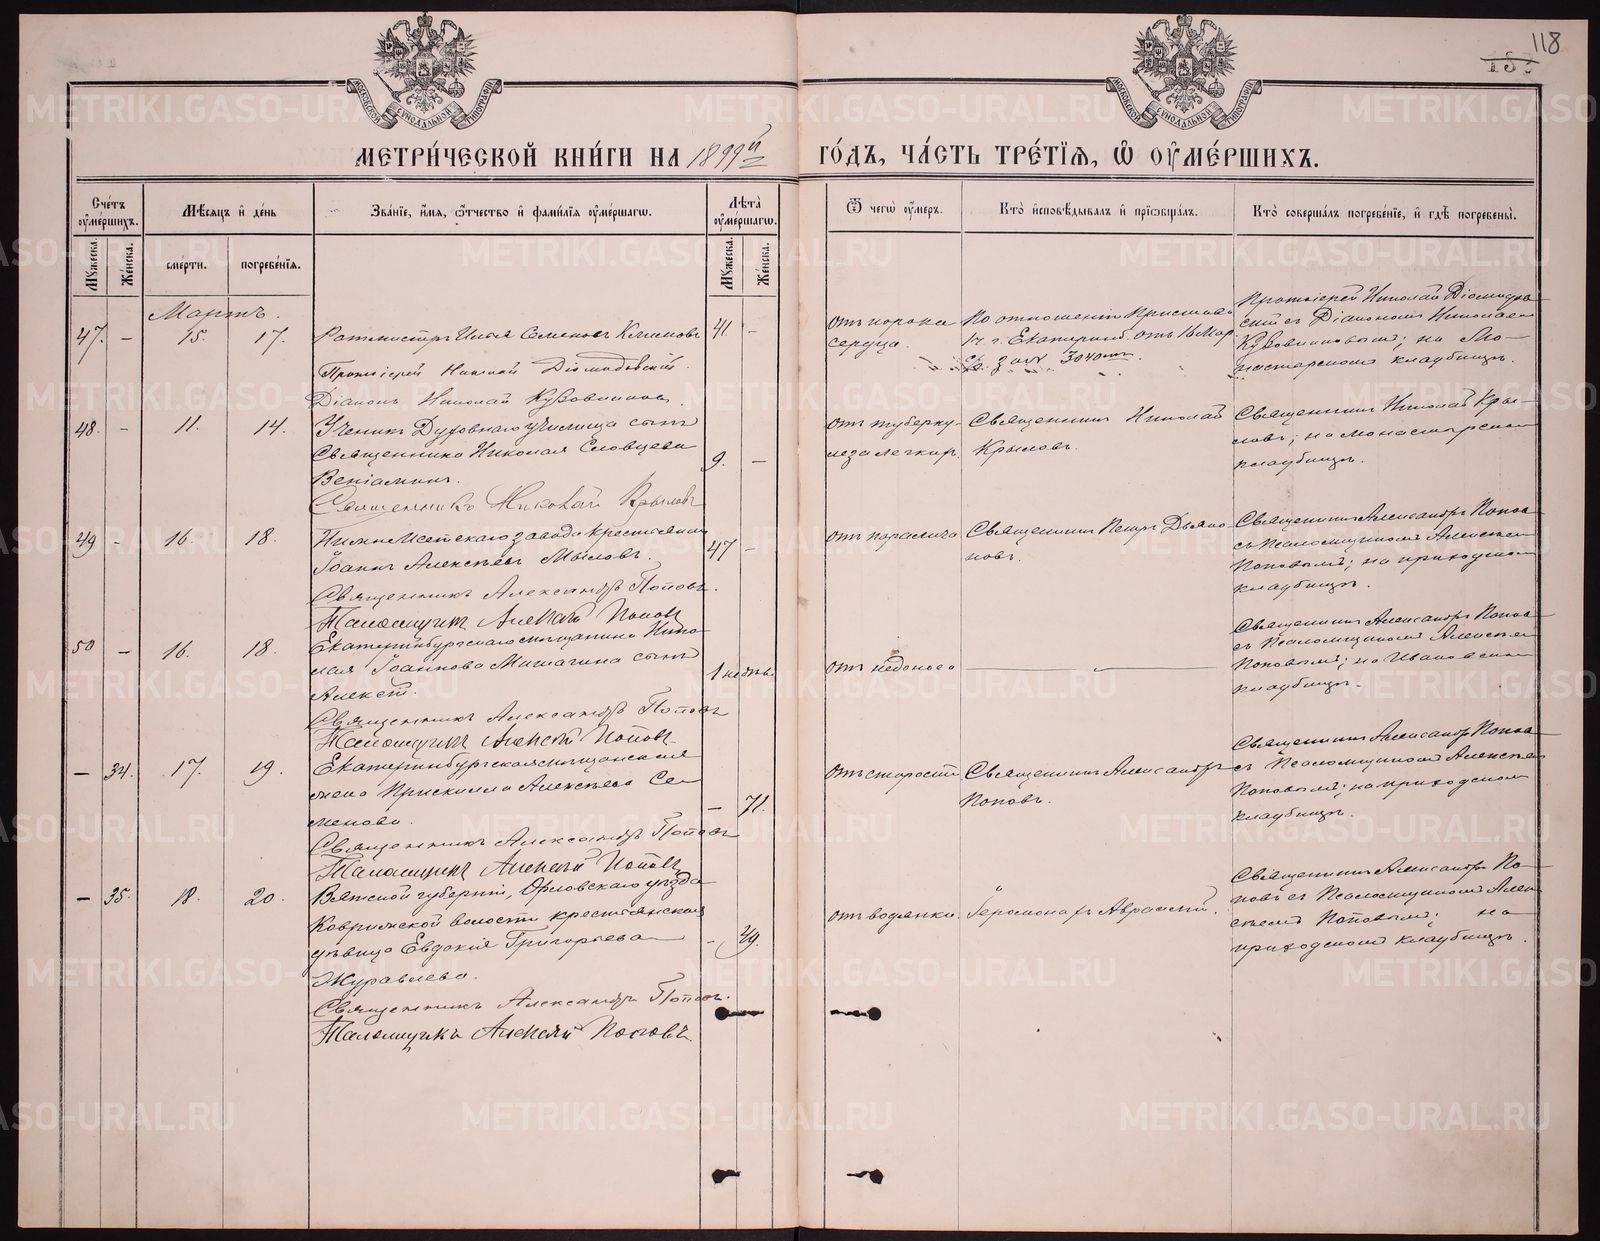 118
МОСКОВСКОЙ СѴНОДАЛЬНОЙ ТИПОГРАФІИ
МОСКОВСКОЙ СѴНОДАЛЬНОЙ ТИПОГРАФІИ
МЕТРИ́ЧЕСКОЙ КНИ́ГИ НА 1899й ГО́ДЪ, ЧА́СТЬ ТРЕ́ТІѦ, Ѡ ОУ҆МЕ́РШИХЪ.
Сче́тъ оу҆ме́ршихъ.
Мѣ́сяцъ и҆ де́нь
Зва́нїе, и҆́мѧ, ѻ҆́тчество и҆ фами́лїѧ оу҆ме́ршагѡ.
Лѣ́та оу҆ме́ршагѡ.
Ѿ чегѡ̀ оу҆́меръ.
Кто̀ и҆сповѣ́дывалъ и҆ прїѻбща́лъ.
Кто̀ соверша́лъ погребе́нїе, и҆ гдѣ̀ погребены̀.
Мꙋ́жеска.
Же́нска.
сме́рти.
погребе́нїѧ.
Мꙋ́жеска.
Же́нска.
Мартъ.
47. – 15. 17. Ротмистръ Илья Семеновъ Климовъ 41 –
Протоіерей Николай Діомидовскій.
Діаконъ Николай
отъ порока
сердца.
По отношенію Пристава
1 ч. г. Екатеринб. отъ 16 Мар.
с/г. за № 3040
Протоіерей Николай Діомидов-
скій съ Діакономъ Николаем
на Мо-
настырскомъ кладбищѣ.
48. – 11. 14. Ученикъ Духовнаго училища сынъ
Священника Николая Словцова
Веніаминъ.
9. –
Священникъ Николай Крыловъ
отъ туберку-
леза легкихъ.
Священникъ Николай
Крыловъ.
Священникъ Николай Кры-
ловъ; на монастырском
кладбищѣ.
49 – 16. 18. Нижне-Исетскаго завода крестьянинъ
Іоаннъ Алексѣевъ Мыловъ.
47 –
Священникъ Александръ Поповъ.
Псаломщикъ Алексѣй Поповъ
отъ паралича
Священникъ Петръ Дьяко-
новъ.
Священникъ Александръ Попов
съ Псаломщикомъ Алексѣем
Поповымъ; на приходском
кладбищѣ.
50 – 16. 18. Екатеринбургскаго мѣщанина Нико-
лая Іоаннова сынъ
Алексѣй.
1 недѣли
Священникъ Александръ Поповъ
Псаломщикъ Алексѣй Поповъ
отъ недоноса
Священникъ Александръ Попов
съ Псаломщикомъ Алексѣем
Поповымъ; на Ивановском
кладбищѣ.
– 34. 17. 19. Екатеринбургская мѣщанская
жена Прискилла Алексѣева Се-
менова.
– 71.
Священникъ Александръ Поповъ
Псаломщикъ Алексѣй Поповъ
отъ старости
Священникъ Александръ
Поповъ.
Священникъ Александръ Попов
съ Псаломщикомъ Алексѣем
Поповымъ; на приходском
кладбищѣ.
– 35. 18. 20. Вятской губерніи, Орловскаго уѣзда
волости крестьянская
дѣвица Евдокія Григорьева
Журавлева.
– 49.
Священникъ Александръ Поповъ.
Псаломщикъ Алексѣй Поповъ
отъ водянки.
Іеромонахъ Авраамій.
Священникъ Александръ По-
повъ съ Псаломщикомъ Алек-
сѣемъ Поповымъ; на
приходскомъ кладбищѣ.
METRIKI.GASO-URAL.RU